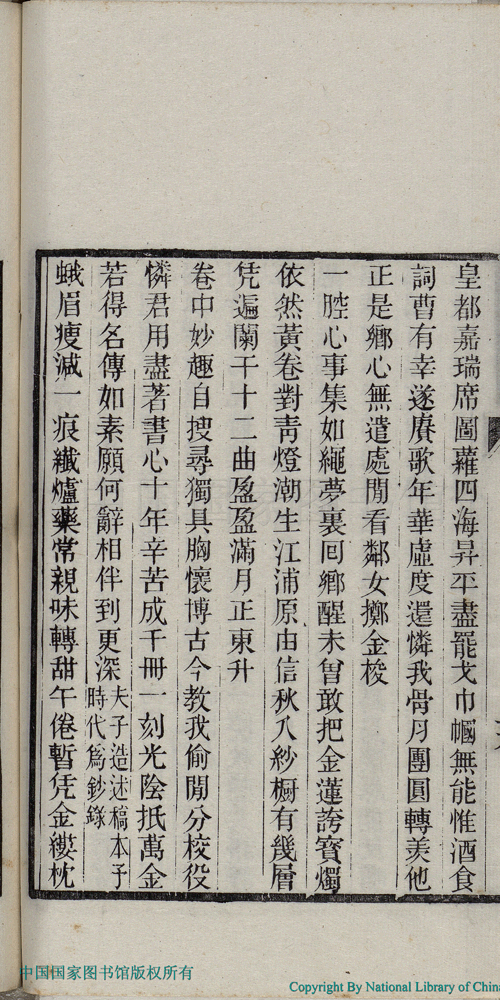 皇都嘉瑞席圖蘿四海昇平盡罷戈巾幗無能惟酒食
詞曹有幸遂賡歌年華虛度還憐我骨月團圓轉羨他
正是鄉心無遣處閒看鄰女擲金梭
一腔心事集如繩夢裏回鄉醒未曾敢把金蓮誇寶燭
依然黃卷對靑燈潮生江浦原由信秋入紗櫥有幾層
凭遍闌干十二曲盈盈滿月正東升
卷中妙趣自搜尋獨具胸懷博古今教我偷閒分校役
憐君用盡著書心十年辛苦成千冊一刻光陰抵萬金
若得名傳如素願何辭相伴到更深夫子造述稿本予
時代爲鈔錄
蛾眉瘦減一痕纖爐藥常親味轉甜午倦暫凭金縷枕
中国国家图书馆版权所有
Copyright By National Library of Chin